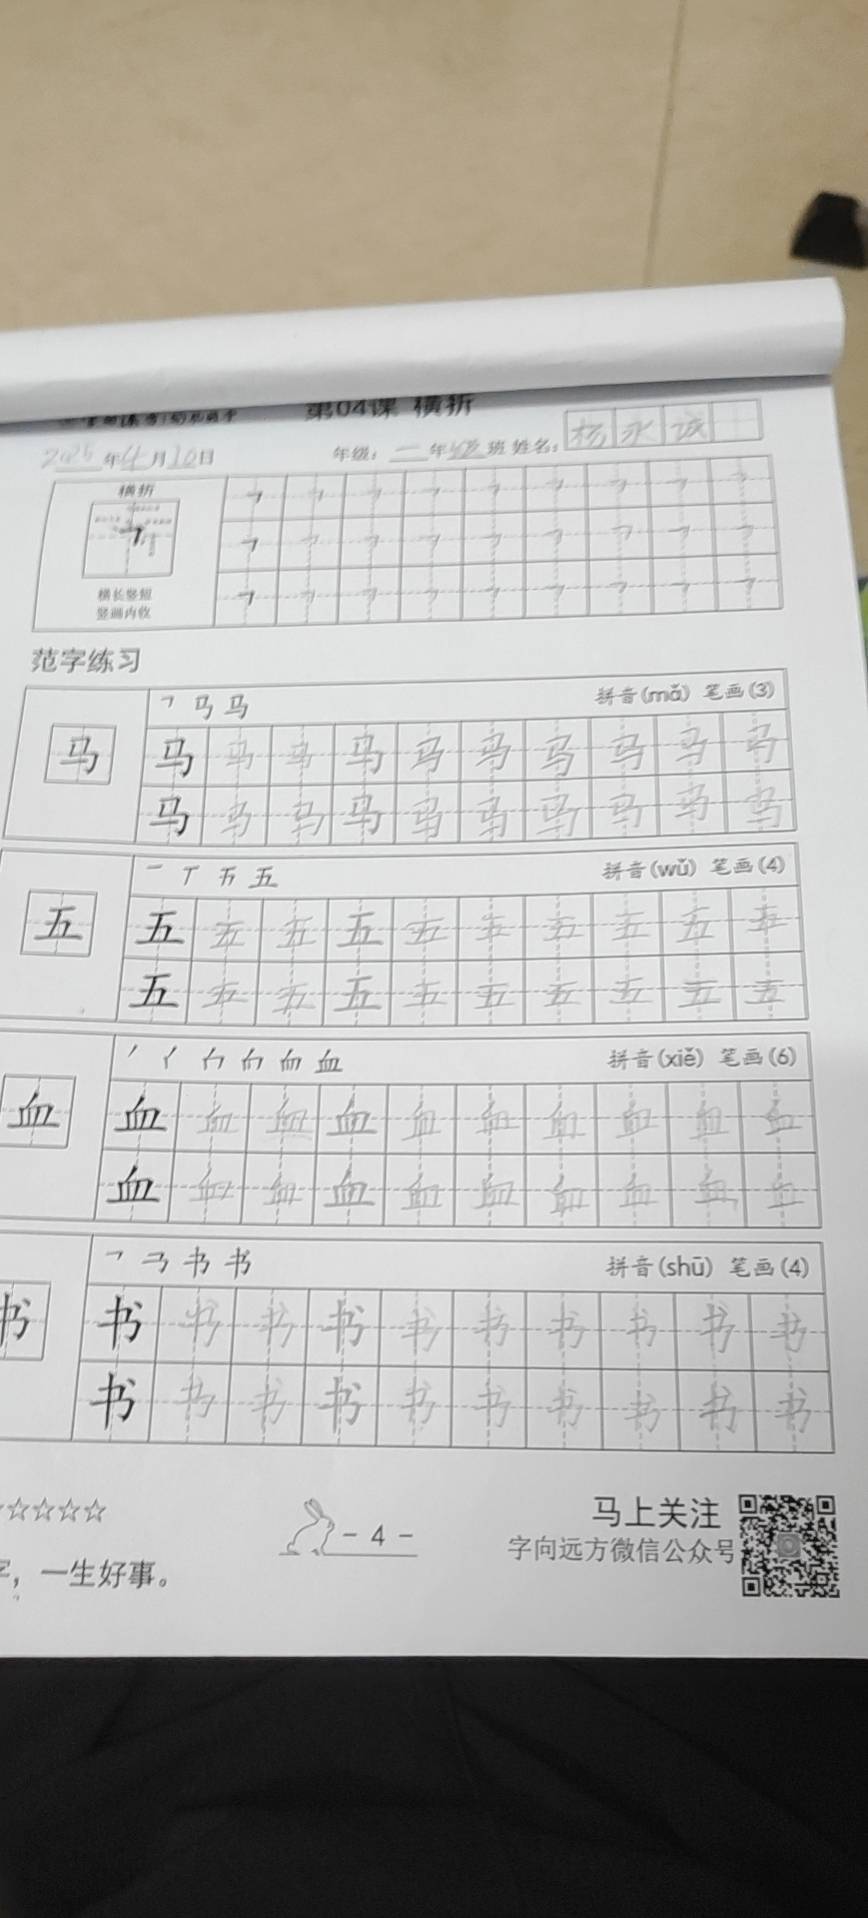 第04课 横折
2025年4月10日
年级：一年 班 姓名：杨永诚
横折
横长竖短
竖画内收
范字练习
㇕ 马 马 拼音(mǎ) 笔画(3)
马 马 马 马 马 马 马 马 马 马 马
马 马 马 马 马 马 马 马 马 马
一 丅 五 五 拼音(wǔ) 笔画(4)
五 五 五 五 五 五 五 五 五 五 五
五 五 五 五 五 五 五 五 五 五
血 拼音(xiě) 笔画(6)
血 血 血 血 血 血 血 血 血 血 血
血 血 血 血 血 血 血 血 血 血
书 书 拼音(shū) 笔画(4)
书 书 书 书 书 书 书 书 书 书 书
书 书 书 书 书 书 书 书 书 书
☆☆☆☆
- 4 -
马上关注
字向远方微信公众号
字，一生好事。